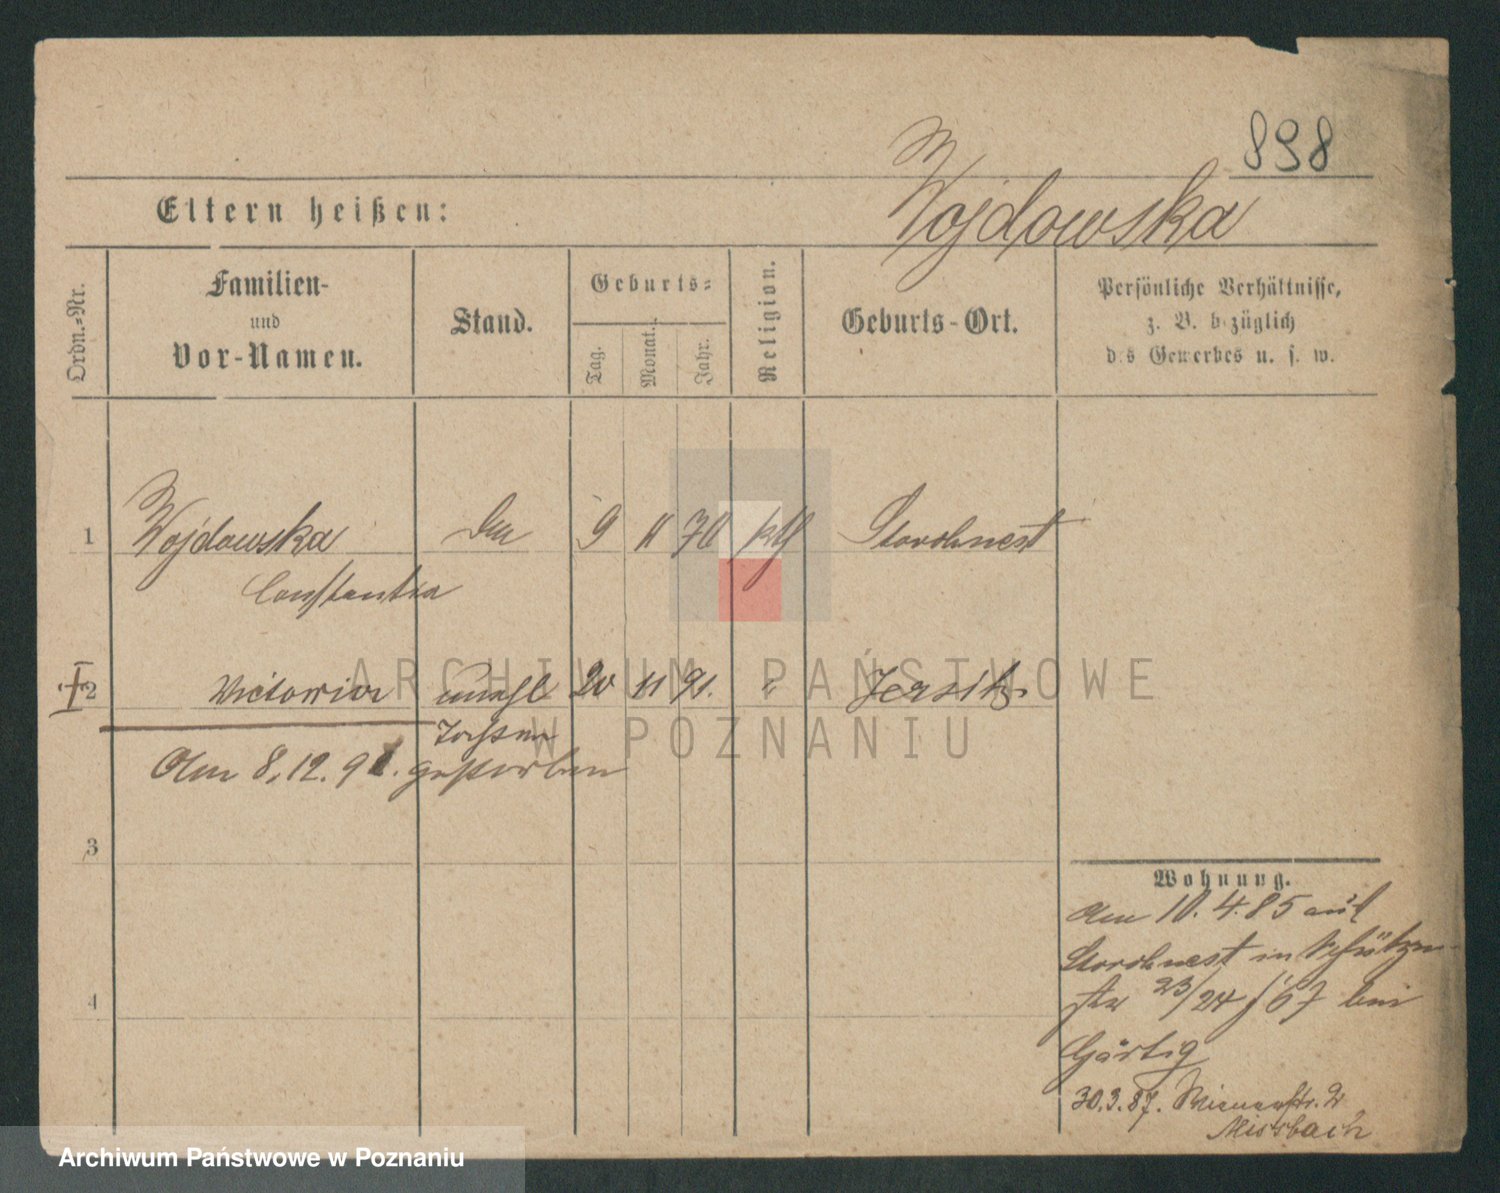 898
Wojdowska
Eltern heißen:
Ordn.-Nr.
Familien-
und
Vor-Namen.
Stand.
Geburts-
Tag.
Monat.
Jahr.
Religion.
Geburts-Ort.
Persönliche Verhältnisse,
z. B. bezüglich
des Gewerbes u. s. w.
1 Wojdowska 9 11 70 kth Storchnest
Constantia
2 Victoria unehl 20 11 91. " Jersitz.
Tochter
Am 8.12.91. gestorben
3
4
Wohnung.
Am 10.4.85 aus
Storchnest in Schützen-
str 23/24 bei
Gärtig
30.3.87. Wienerstr. 2
Missbach
ARCHIWUM PAŃSTWOWE
W POZNANIU
Archiwum Państwowe w Poznaniu